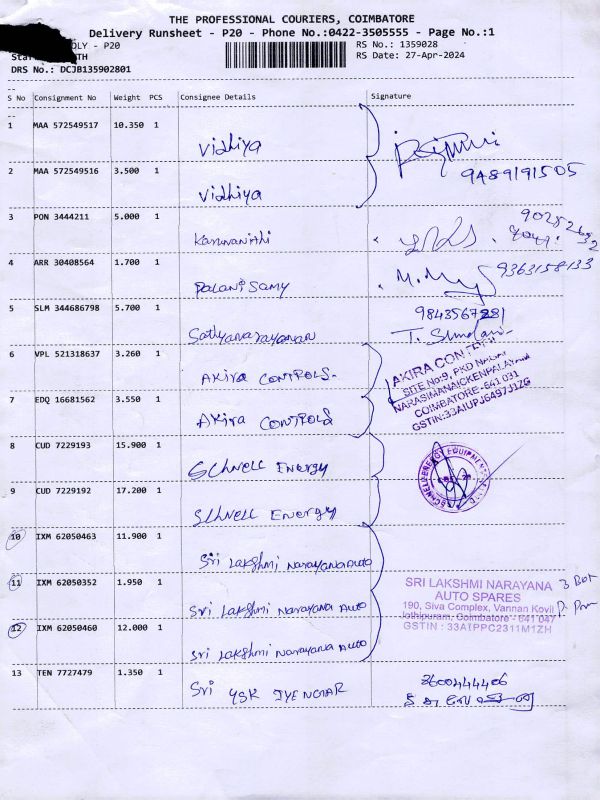 THE PROFESSIONAL COURIERS, COIMBATORE
Delivery Runsheet - P20 - Phone No.:0422-3505555 - Page No.:1
- P20
RS No.: 1359028
RS Date: 27-Apr-2024
DRS No.: DCJB135902801
S No Consignment No Weight PCS Consignee Details Signature
1 MAA 572549517 10.350 1 Vidhiya
2 MAA 572549516 3.500 1 Vidhiya 9489191505
3 PON 3444211 5.000 1
4 ARR 30408564 1.700 1 Palani Samy 9363158133
5 SLM 344686798 5.700 1 Sathyanarayanan
6 VPL 521318637 3.260 1 Akira CONTROLS-
7 EDQ 16681562 3.550 1 Akira CONTROLS
AKIRA
SITE No:9, PKD
NARASIMANAICKENPALAYAM
COIMBATORE-641 031
GSTIN:33AIUPJ6497J1ZG
8 CUD 7229193 15.900 1 Schnell Energy
9 CUD 7229192 17.200 1 Schnell Energy
10 IXM 62050463 11.900 1 Sri Lakshmi Narayana Auto
11 IXM 62050352 1.950 1 Sri Lakshmi Narayana Auto
12 IXM 62050460 12.000 1 Sri Lakshmi Narayana Auto
SRI LAKSHMI NARAYANA
AUTO SPARES
190, Siva Complex, Vannan Kovil
Jothipuram, Coimbatore - 641 047
GSTIN : 33AIPPC2311M1ZH
13 TEN 7727479 1.350 1 Sri YSK IYENGAR 8600444406